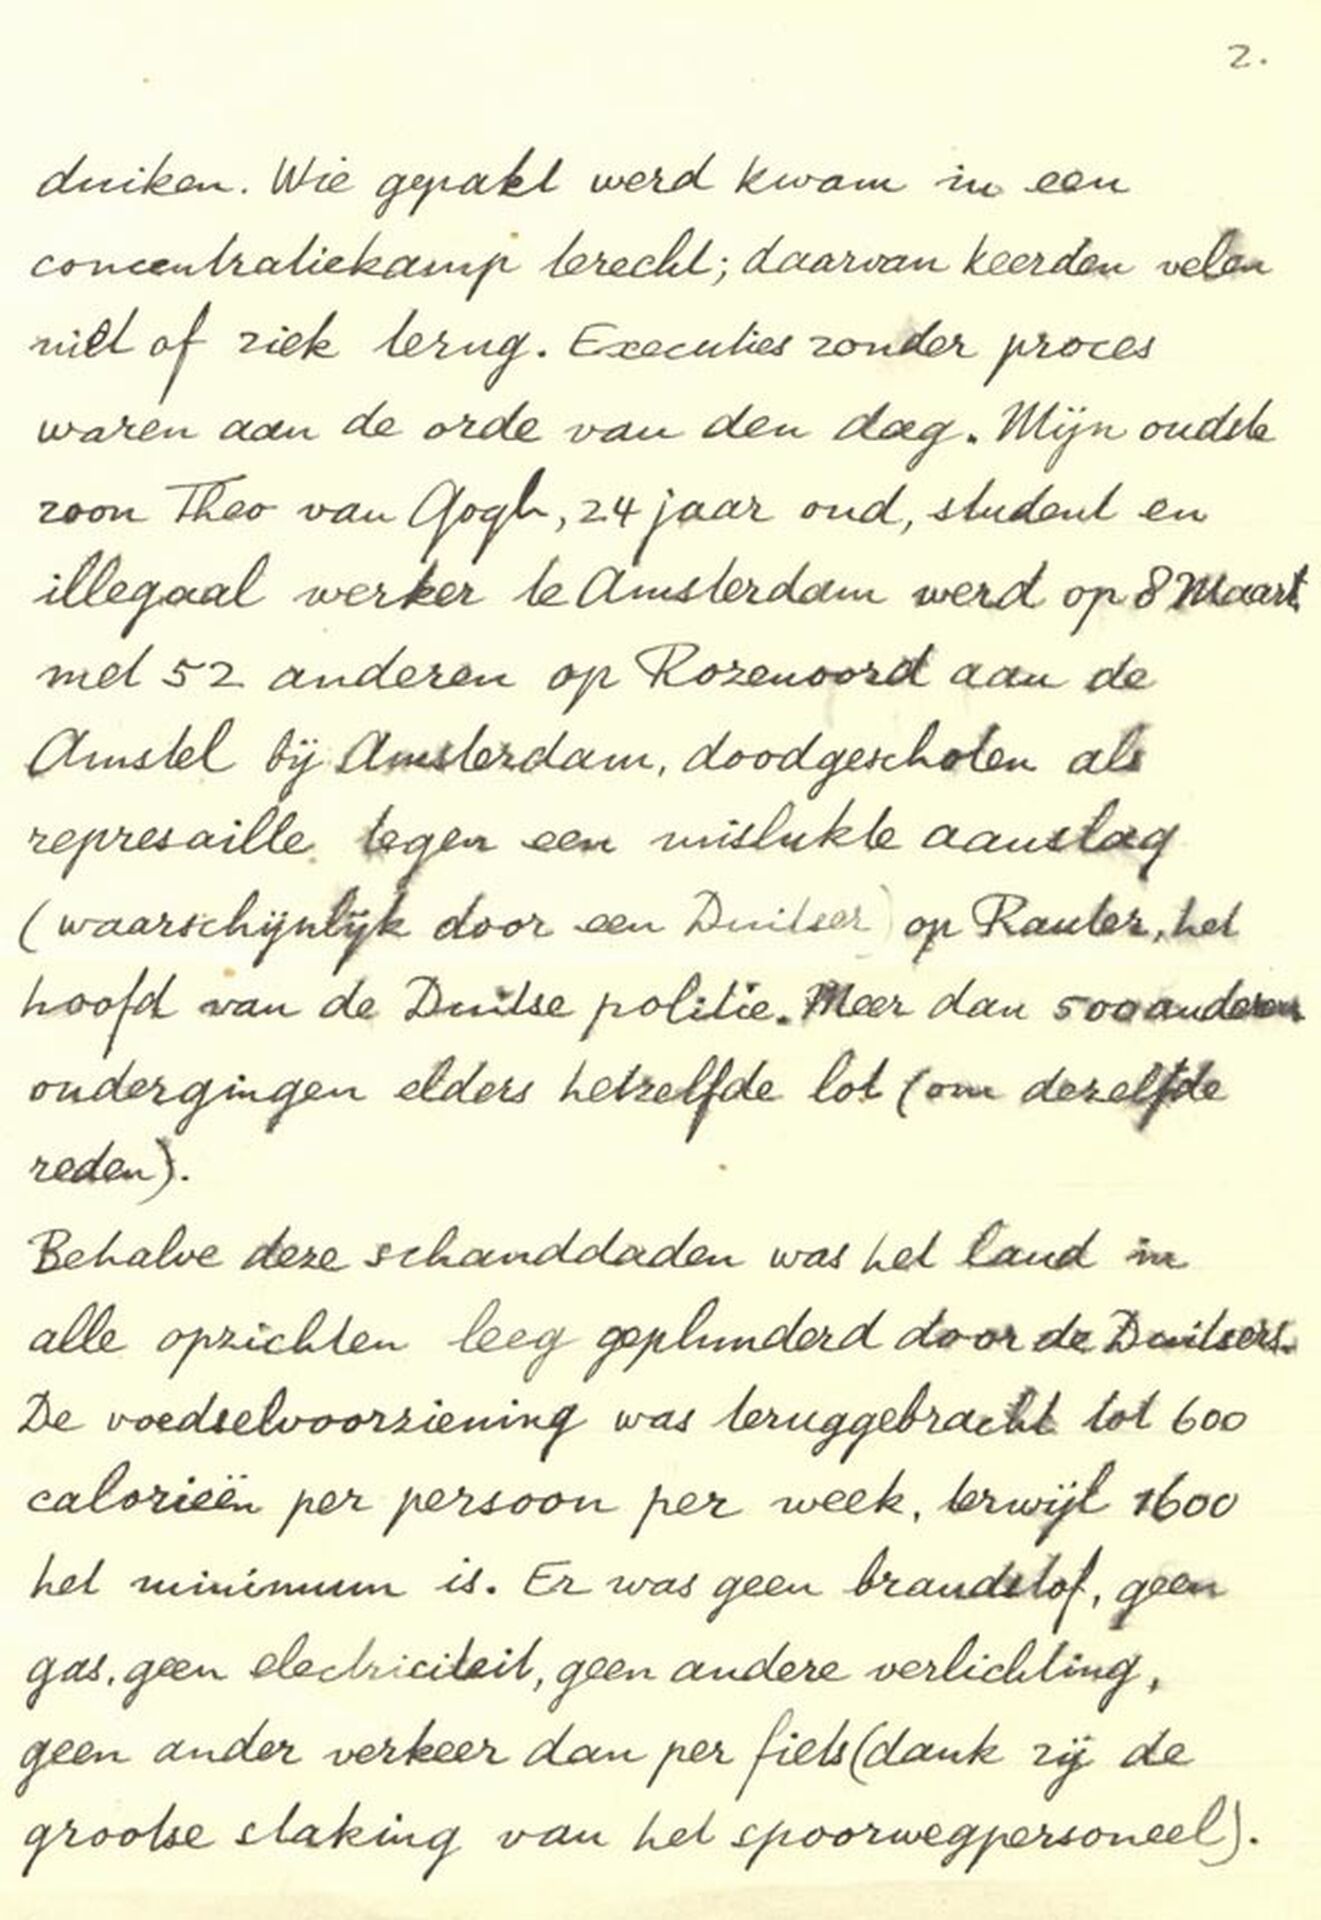 2.
duiken. Wie gepakt werd kwam in een
concentratiekamp terecht; daarvan keerden velen
niet of ziek terug. Executies zonder proces
waren aan de orde van den dag. Mijn oudste
zoon Theo van Gogh, 24 jaar oud, student en
illegaal werker te Amsterdam werd op 8 Maart
met 52 anderen op Rozenoord aan de
Amstel bij Amsterdam, doodgeschoten als
represaille tegen een mislukte aanslag
(waarschijnlijk door een Duitser) op Rauter, het
hoofd van de Duitse politie. Meer dan 500 anderen
ondergingen elders hetzelfde lot (om dezelfde
reden).
Behalve deze schanddaden was het land in
alle opzichten leeg geplunderd door de Duitsers.
De voedselvoorziening was teruggebracht tot 600
calorieën per persoon per week, terwijl 1600
het minimum is. Er was geen brandstof, geen
gas, geen electriciteit, geen andere verlichting,
geen ander verkeer dan per fiets (dank zij de
grootse staking van het spoorwegpersoneel).